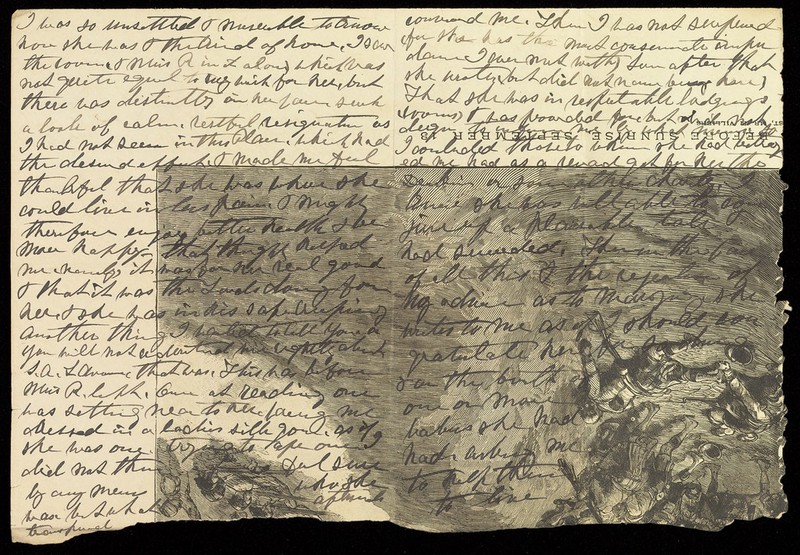 I was so unsettled & miserable to know
how she was & the kind of home, I saw
the room & Miss R in L alone, which was
not quite equal to my wish for her, but
there was distinctly on her face such
a look of calm, restful resignation as
I had not seen in this place, which had
the desired effect. I made me feel
thankful that she was where she
could live in less pain & might
therefore enjoy better health & be
more happy. that thought helped
me namely it was for her real good
& that it was the Lord's doing for
her & she was in his safe keeping
another thing I wanted to tell you &
you will not understand me rightly about
that was. This was before
Miss R left. Once at reading one
was sitting near to her facing me
dressed in a ladies silk gown as if
she was one trying to ape one
did not then
by any means
was but what
transpired
command me. Then I was not surprised
for she has the most consummate impu
dence I ever met with. Soon after that
she wrote, but did not name being here,
That she was in respectable lodgings
rooms
BEFORE SUNRISE, SEPTEMBER 13
I concluded those to whom she had betray
ed me had as a reward got for her the
in some other charity, I
knew she was well able to
give up a plausible tale &
had succeeded. Then in the
of all this & the rejection of
my advice as to marrying she
writes to me as if I should con
gratulate her
on the birth of
one or more
babies she had
had & asking me
to help them
to live